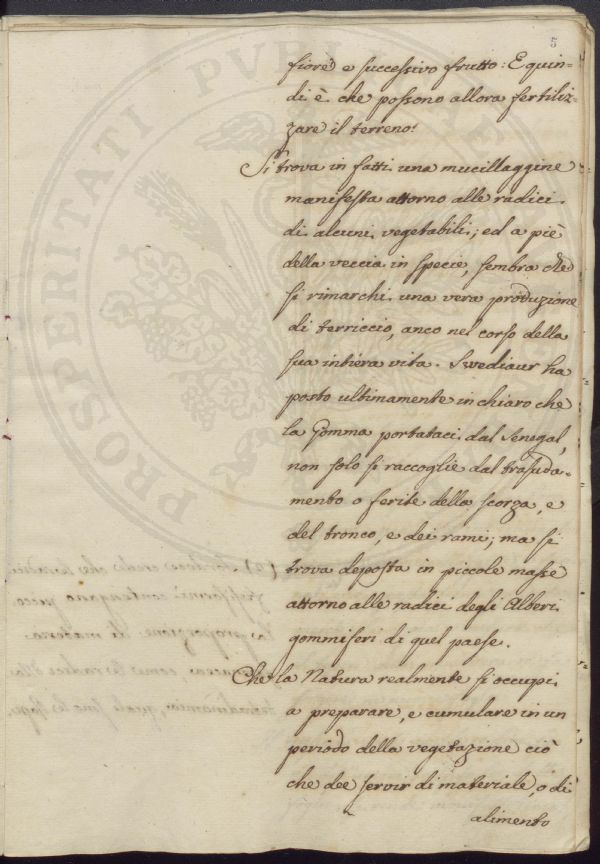 5
fiore e successivo frutto: E quin-
di è che possono allora fertiliz-
zare il terreno!
Si trova in fatti una mucillaggine
manifesta attorno alle radici
di alcuni vegetabili; ed a piè
della veccia in specie, sembra che
si rimarchi una vera produzione
di terriccio, anco nel corso della
sua intiera vita. Swediaur ha
posto ultimamente in chiaro che
la Gomma portataci dal Senegal,
non solo si raccoglie dal trasuda-
mento o ferite della scorza, e
del tronco, e dei rami; ma si
trova deposta in piccole masse
attorno alle radici degli Alberi
gommiferi di quel paese.
Che la Natura realmente si occupi
a preparare, e cumulare in un
periodo della vegetazione ciò
che dee servir di materiale, o di
alimento
PROSPERITATI PUBLICAE